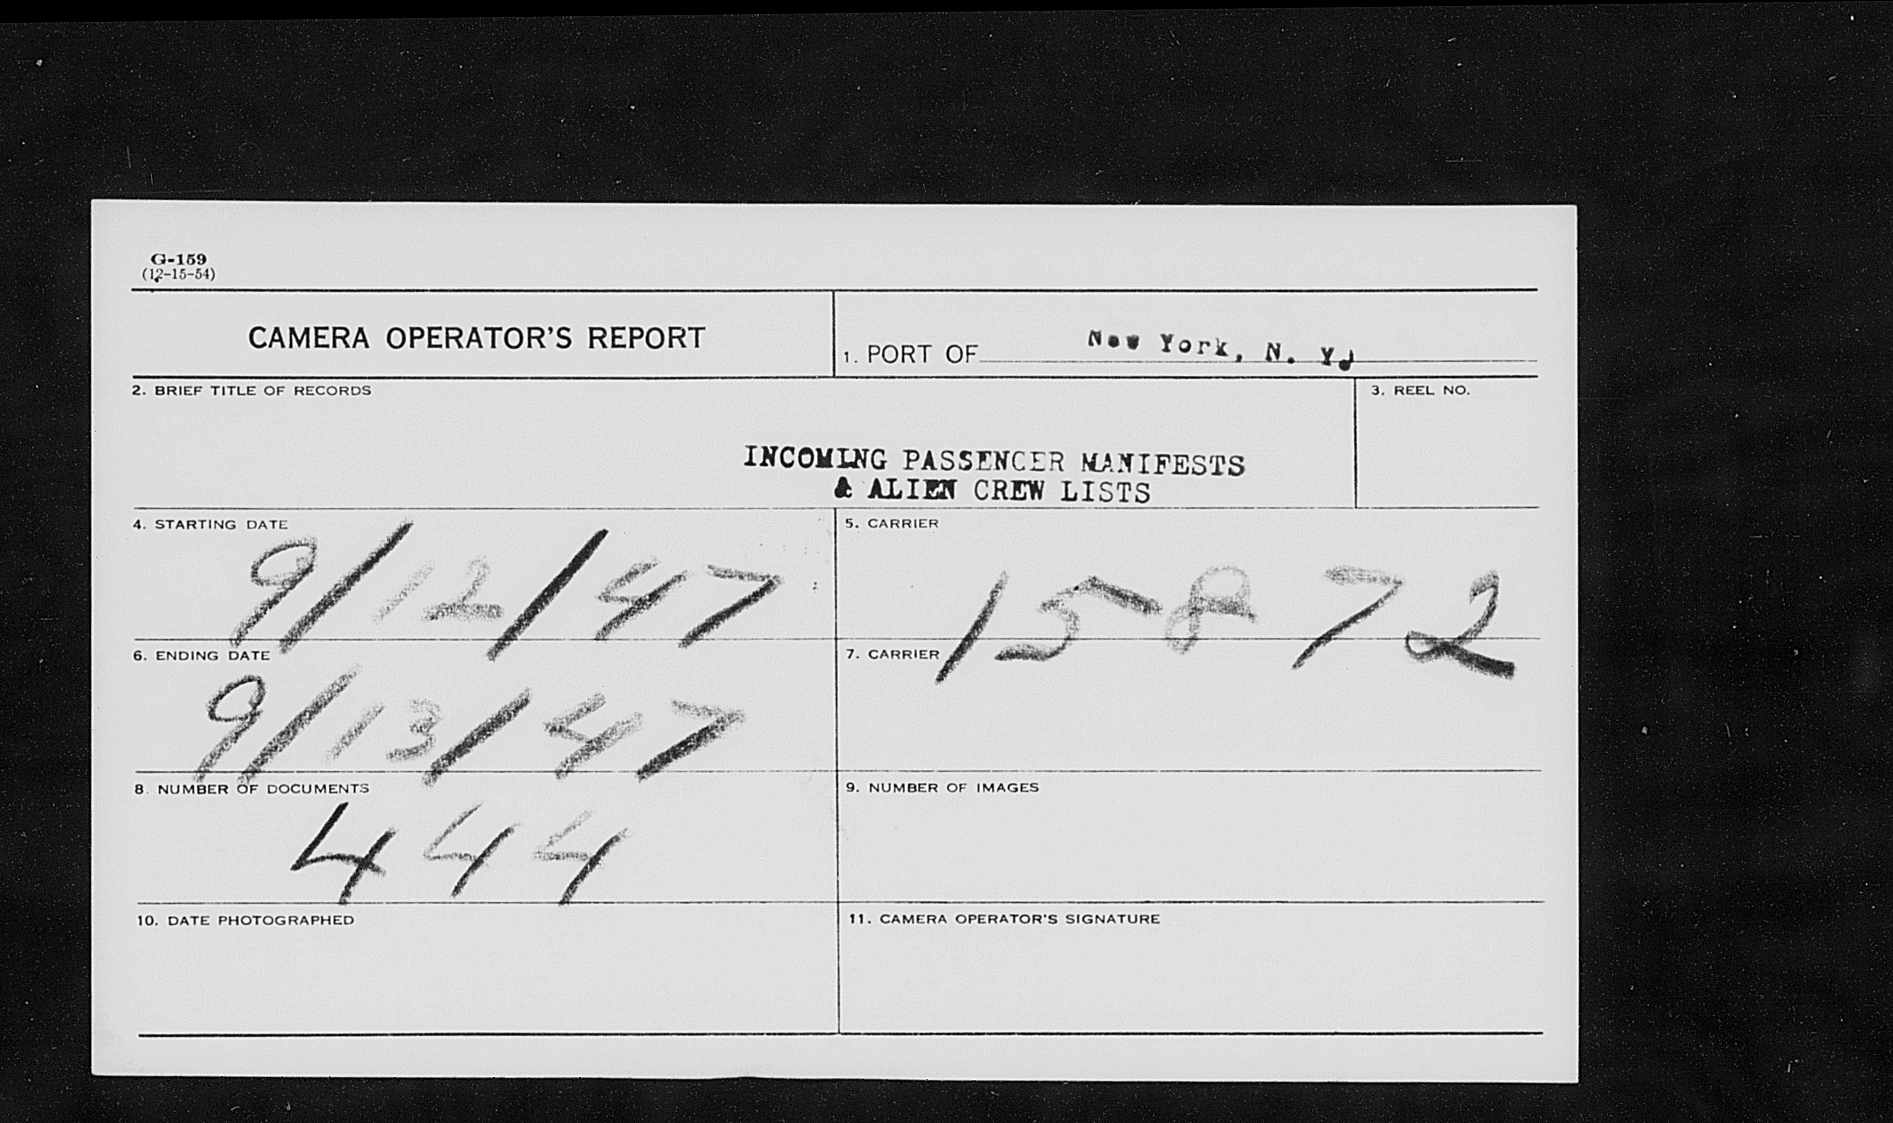 G-159
(12-15-54)
CAMERA OPERATOR'S REPORT
1. PORT OF New York, N. Y.
2. BRIEF TITLE OF RECORDS
3. REEL NO.
INCOMING PASSENGER MANIFESTS
& ALIEN CREW LISTS
4. STARTING DATE
9/12/47
5. CARRIER
15872
6. ENDING DATE
9/13/47
7. CARRIER
8. NUMBER OF DOCUMENTS
444
9. NUMBER OF IMAGES
10. DATE PHOTOGRAPHED
11. CAMERA OPERATOR'S SIGNATURE